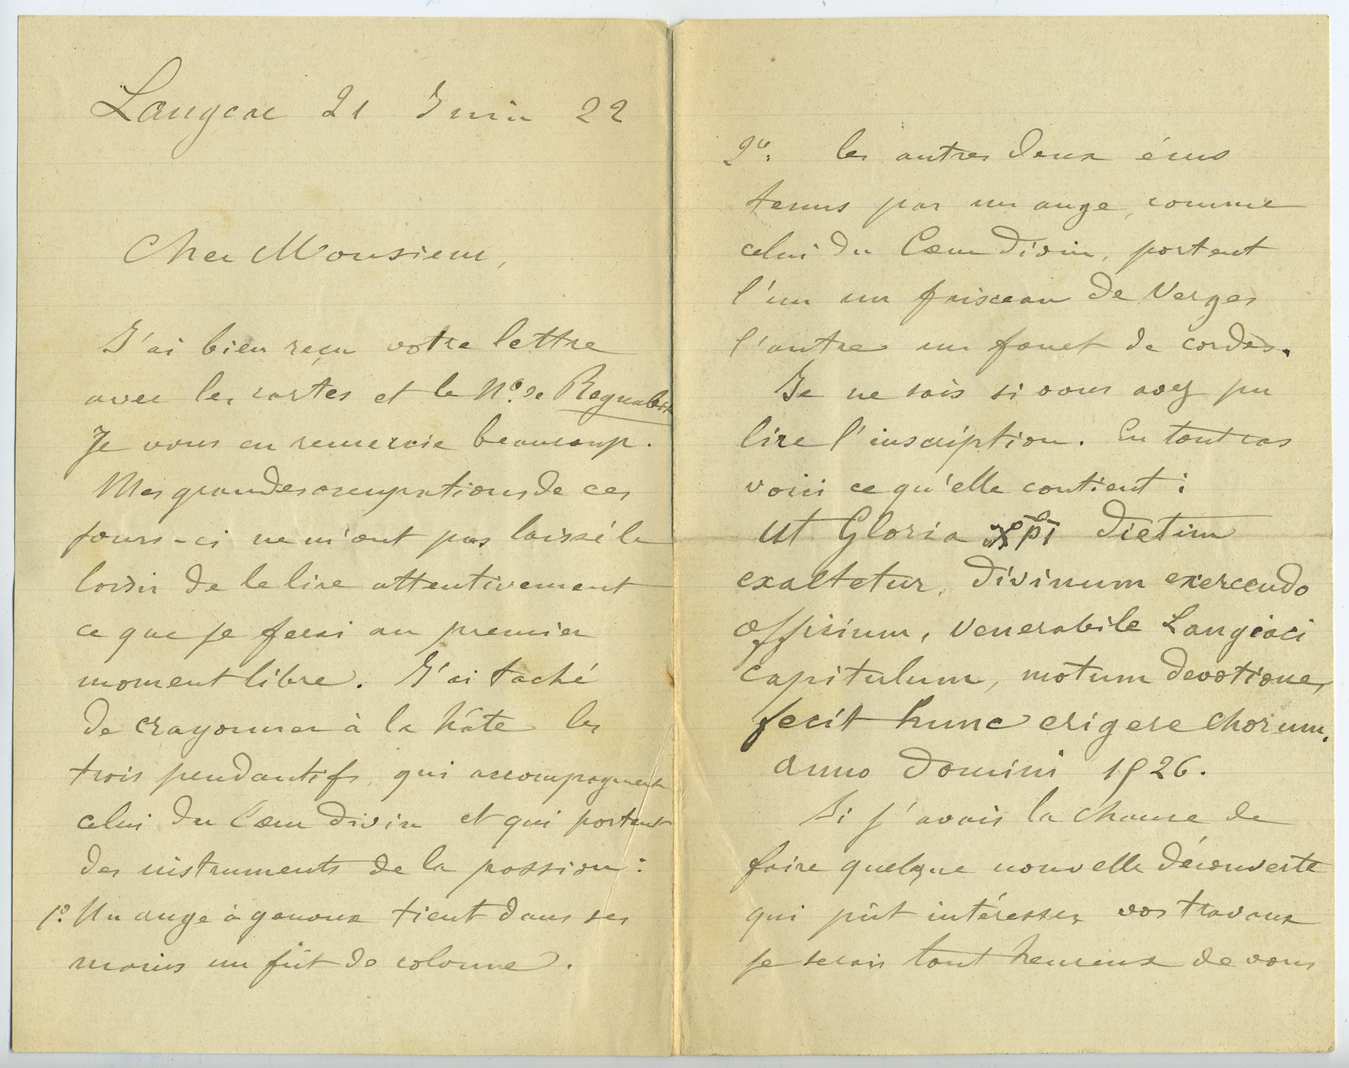 Langeac 21 Juin 22
Cher Monsieur,
J'ai bien reçu votre lettre
avec les cartes et le N° de Regnabit
Je vous en remercie beaucoup.
Mes grandes occupations de ces
jours-ci ne m'ont pas laissé le
loisir de le lire attentivement
ce que je ferai au premier
moment libre. J'ai taché
de crayonner à la hâte les
trois pendantifs qui accompagnent
celui du Cœur divin et qui portent
des instruments de la passion :
1° Un ange à genoux tient dans ses
mains un fût de colonne.
2°: les autres deux écus
tenus par un ange, comme
celui du Cœur Divin, portent
l'un un faisceau de Verges
l'autre un fouet de cordes.
Je ne sais si vous avez pu
lire l'inscription. En tout cas
voici ce qu'elle contient :
Ut Gloria xpi dietim
exaltetur, divinum exercendo
officium, venerabile Langiaci
capitulum, motum devotione,
fecit hunc erigere chorum.
anno domini 1526.
Si j'avais la chance de
faire quelque nouvelle découverte
qui pût intéresser vos travaux
je serais tout heureux de vous